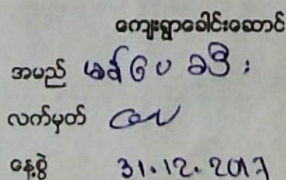 ကျေးရွာခေါင်းဆောင်
အမည် မန်ပေခဒီး
လက်မှတ်
နေ့စွဲ 31.12.2017